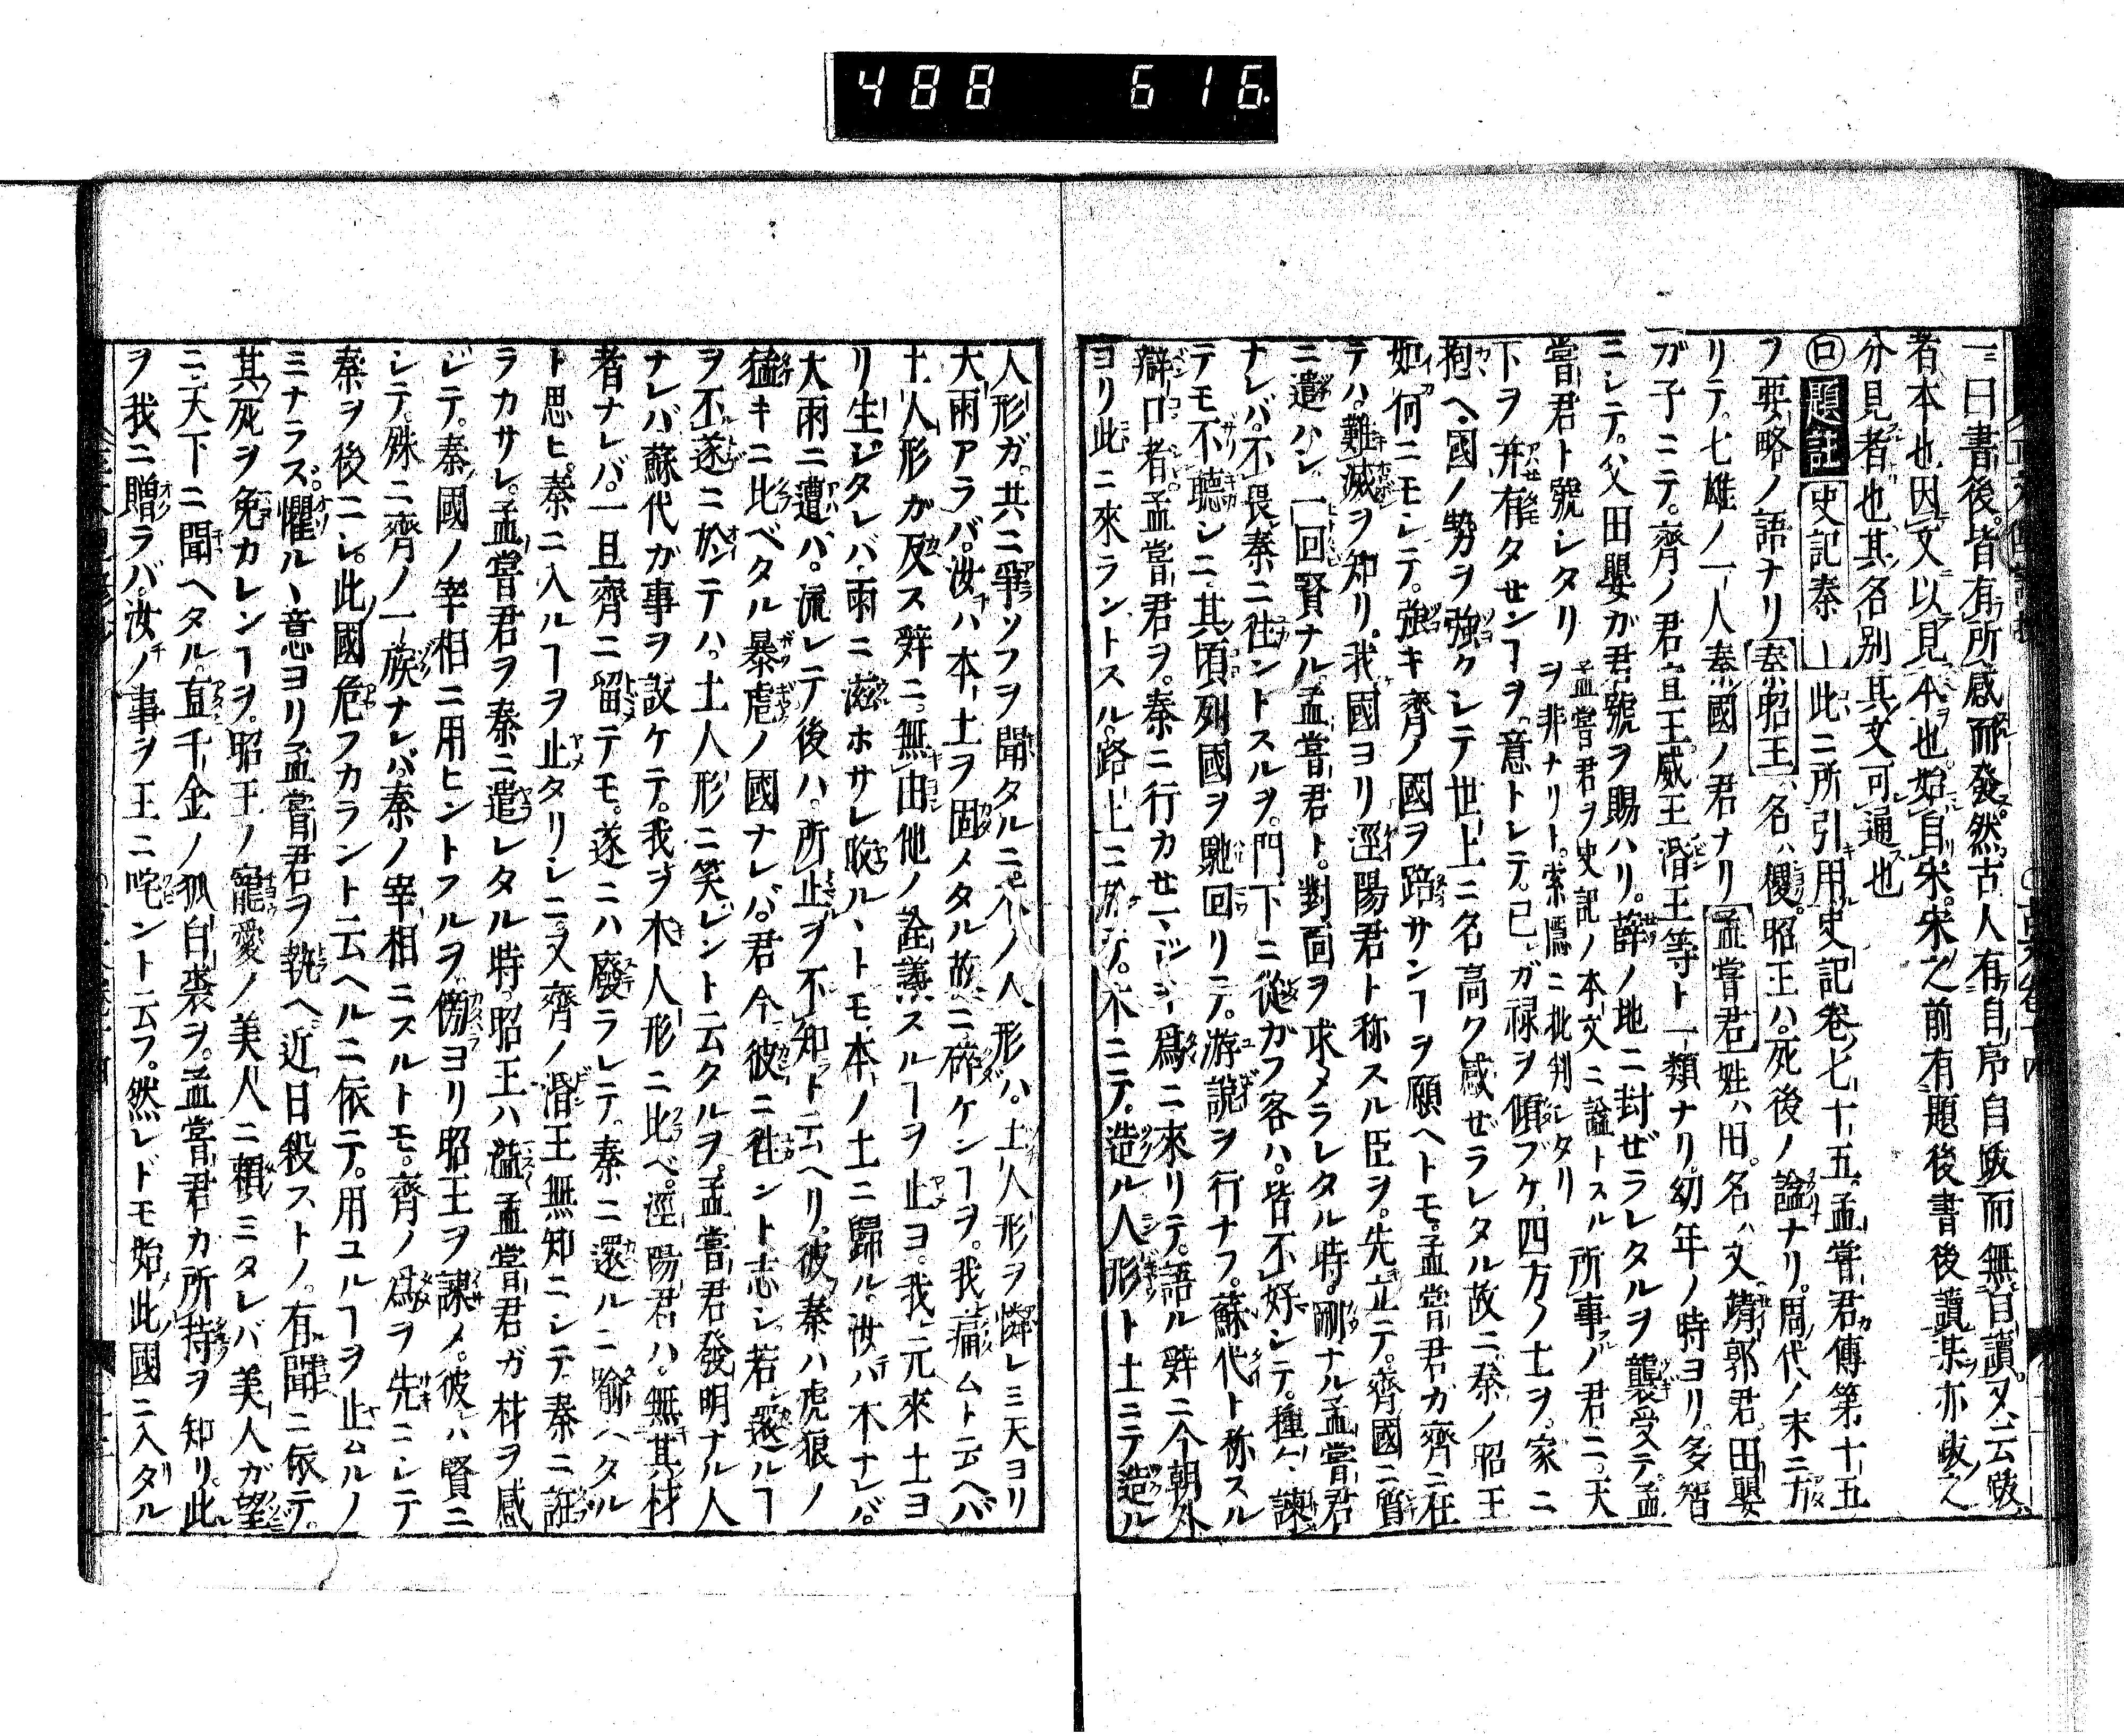 488 616
一曰書後。皆有所感而發。然古人有自序自跋而無自讀。又云跋
者本也因文以見本也。始自宋。宋之前有題後書後讀某亦跋之
分見者也其名別其文可通也
題註 史記秦 此ニ所引用史記卷七十五孟嘗君傳第十五
フ要略ノ語ナリ 秦昭王 名ハ稷。昭王ハ。死後ノ諡ナリ。周代ノ末ニ方
リテ。七雄ノ一人秦國ノ君ナリ 孟嘗君 姓ハ田。名ハ文。靖郭君田嬰
ガ子ニテ。齊ノ君宣王威王湣王等ト一類ナリ。幼年ノ時ヨリ。多智
ニシテ。父田嬰ガ君號ヲ賜ハリ。薛ノ地ニ封ゼラレタルヲ襲受テ。孟
嘗君ト號シタリ 孟嘗君ヲ史記ノ本文ニ諡トスル
ヲ非ナリト。索隱ニ批判シタリ 所事ノ君ニ。天
下ヲ并有タセンヿヲ意トシテ。己ガ禄ヲ傾ブケ。四方ノ士ヲ。家ニ
抱ヘ。國ノ勢ヲ強クシテ世上ニ名高ク感ゼラレタル故ニ。秦ノ昭王
如何ニモシテ。強キ齊ノ國ヲ踣サンヿヲ願ヘトモ。孟嘗君ガ齊ニ在
テハ。難滅ヲ知リ。我國ヨリ涇陽君ト称スル臣ヲ。先立テ。齊國ニ質
ニ遣ハシ。一回賢ナル孟嘗君ト。對面ヲ求メラレタル時。剛ナル孟嘗君
ナレバ。不畏秦ニ往ントスルヲ。門下ニ從ガフ客ハ。皆不好シテ。種々諫
テモ不聽シニ。其頃列國ヲ馳回リテ。游説ヲ行ナフ。蘇代ト称スル
辯口者。孟嘗君ヲ。秦ニ行カセマジキ爲ニ來リテ。語ル辞ニ今朝外
ヨリ此ニ來ラントスル路上ニ於テ。木ニテ。造ル人形ト土ニテ造ル
人形ガ。共ニ爭ソフヲ聞タルニ。木ノ人形ハ。土人形ヲ憐レミ天ヨリ
大雨アラバ。汝ハ本土ヲ固メタル故ニ碎ケンヿヲ。我痛ムト云ヘバ
土人形ガ反ス辞ニ。無由他ノ詮議スルヿヲ止ヨ。我元來土ヨ
リ生ジタレバ。雨ニ滋ホサレ敗ルヽトモ。本ノ土ニ歸ル。汝ハ木ナレバ。
大雨ニ遭ハバ。流レテ後ハ。所止ヲ不知ト云ヘリ。彼秦ハ虎狼ノ
猛キニ比ベタル暴虐ノ國ナレバ。君今彼ニ往ント志シ。若還ルヿ
ヲ不遂ニ於ンテハ。土人形ニ笑レント云タルヲ。孟嘗君發明ナル人
ナレバ蘇代ガ事ヲ設ケテ。我ヲ木人形ニ比ベ。涇陽君ハ。無其材
者ナレバ。一旦齊ニ留テモ。遂ニハ廢ラレテ。秦ニ還ルニ喩ヘタル
ト思ヒ。秦ニ入ルヿヲ止タリシニ。又齊ノ湣王無知ニシテ秦ニ誑
ラカサレ。孟嘗君ヲ秦ニ遣レタル時。昭王ハ溢孟嘗君ガ材ヲ感
ジテ。秦國ノ宰相ニ用ヒントフルヲ。傍ヨリ昭王ヲ諫メ。彼ハ賢ニ
シテ。殊ニ齊ノ一族ナレバ秦ノ宰相ニスルトモ。齊ノ爲ヲ先ニシテ
秦ヲ後ニシ。此國危フカラント云ヘルニ依テ。用ユルヿヲ止ムルノ
ミナラズ。懼ルヽ意ヨリ孟嘗君ヲ執ヘ。近日殺ストノ。有聞ニ依テ。
其死ヲ免カレンヿヲ。昭王ノ寵愛ノ美人ニ頼ミタレバ美人ガ望
ニ。天下ニ聞ヘタル。直千金ノ狐白裘ヲ。孟嘗君カ所持ヲ知リ。此
ヲ我ニ贈ラバ。汝ノ事ヲ王ニ咤ント云フ。然レドモ始此國ニ入タル